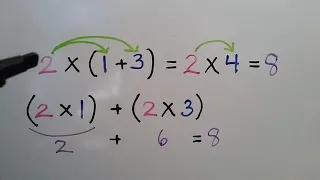 2 × (1 + 3) = 2 × 4 = 8
(2 × 1) + (2 × 3)
2 + 6 = 8